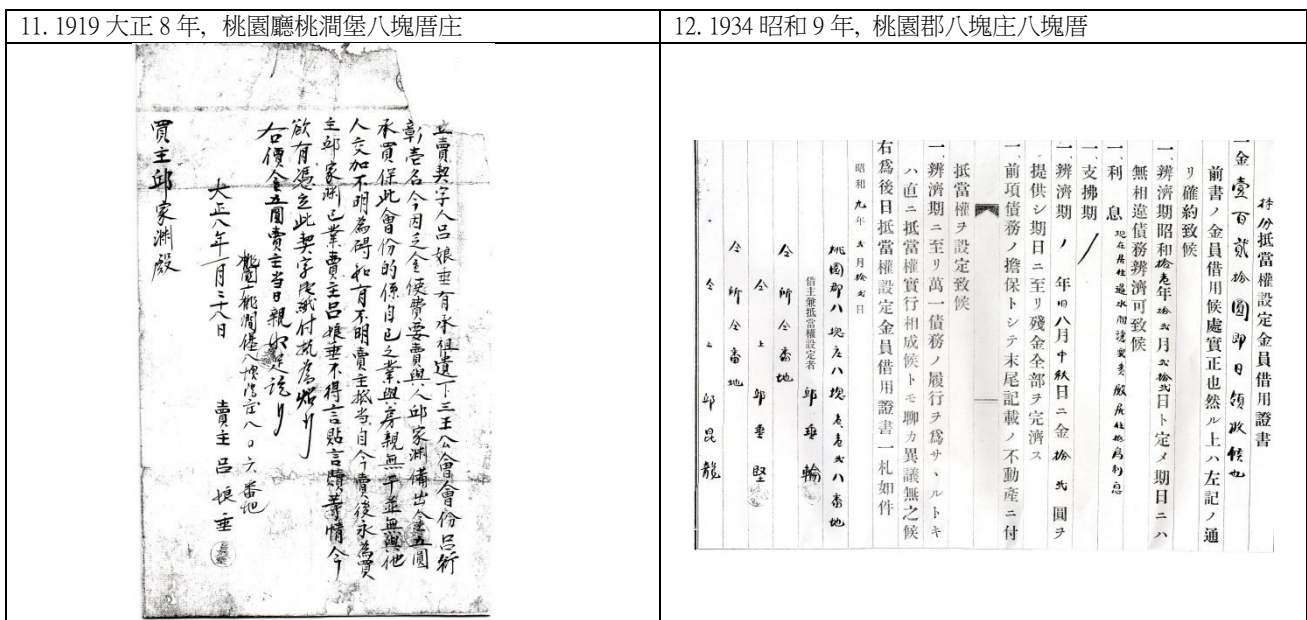 11. 1919 大正 8 年, 桃園廳桃澗堡八塊厝庄
立賣契字人呂娘垂有承祖遺下三王公會會份呂衍
彰壱名今因乏金使費要賣與人邱家渊備出金五圓
承買保此會份的係自己之業與房親無干並無與他
人交加不明為碍如有不明賣主抵当自今賣後永為買
主邱家渊己業賣主呂娘垂不得言貼言贖等情今
欲有憑立此契字壱紙付执為炤
右價金五圓賣主当日親收足訖
大正八年一月二十八日
桃澗堡八塊厝庄八〇六番地
賣主 呂娘垂
買主邱家渊殿
12. 1934 昭和 9 年, 桃園郡八塊庄八塊厝
持份抵當權設定金員借用證書
一金壹百貳拾圓即日領收候也
前書ノ金員借用候處實正也然ル上ハ左記ノ通
リ確約致候
一、辨濟期昭和拾壱年拾弐月弐拾弐日ト定メ期日ニハ
無相違債務辨濟可致候
一、利息
一、支拂期
一、辨濟期ノ 年旧八月中秋日ニ金拾弐圓ヲ
提供シ期日ニ至リ殘金全部ヲ完濟ス
一、前項債務ノ擔保トシテ末尾記載ノ不動產ニ付
抵當權ヲ設定致候
一、辨濟期ニ至リ萬一債務ノ履行ヲ爲サヽルトキ
ハ直ニ抵當權實行相成候トモ聊カ異議無之候
右爲後日抵當權設定金員借用證書一札如件
昭和九年 月拾弐日
桃園郡八塊庄八塊厝壱弐八番地
借主兼抵當權設定者 邱垂輪
仝所仝番地
仝上 邱垂堅
仝所仝番地
仝上 邱昆龍